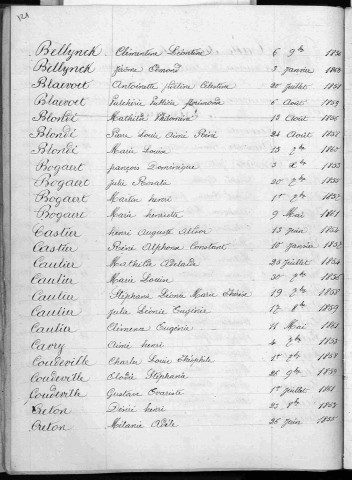 121
Bellynck Clémentine Léontine 6 9bre
Bellynck Jérôme Edmond 3 Janvier
Blaevoet Antoinette Pauline Célestine 20 Juillet 1858
Blaevoet Pulchérie 6 Août 1859
Blondé Mathilde Philomène 13 Août 1856
Blondé Pierre Louis Aimé Rémi 24 Août 1858
Blondé Marie Louise 13 1860
Bogaert François Dominique 3 Xbre 1853
Bogaert Julie Rosalie 20 1855
Bogaert Martin henri 1er
Bogaert Marie henriette 9 Mai 1861
Castier henri Auguste 13 Juin 1854
Castier René Alphonse Constant 10 Janvier 1857
Caulier Mathilde Adelaïde 23 Juillet 1854
Caulier Marie Louise 30 1856
Caulier Stéphanie Léonie Marie Thérèse 19 1858
Caulier Julie Léonie Eugénie 17 1859
Caulier Clémence Eugénie 11 Mai 1861
Cavry Aimé henri 4 1853
Coudeville Charles Louis Théophile 1er 1858
Coudeville Elodie Stéphanie 25 9bre 1859
Coudeville Gustave Evariste 1er Juillet 1861
Creton Désiré henri 23 1853
Creton Mélanie Adèle 25 Juin 1855